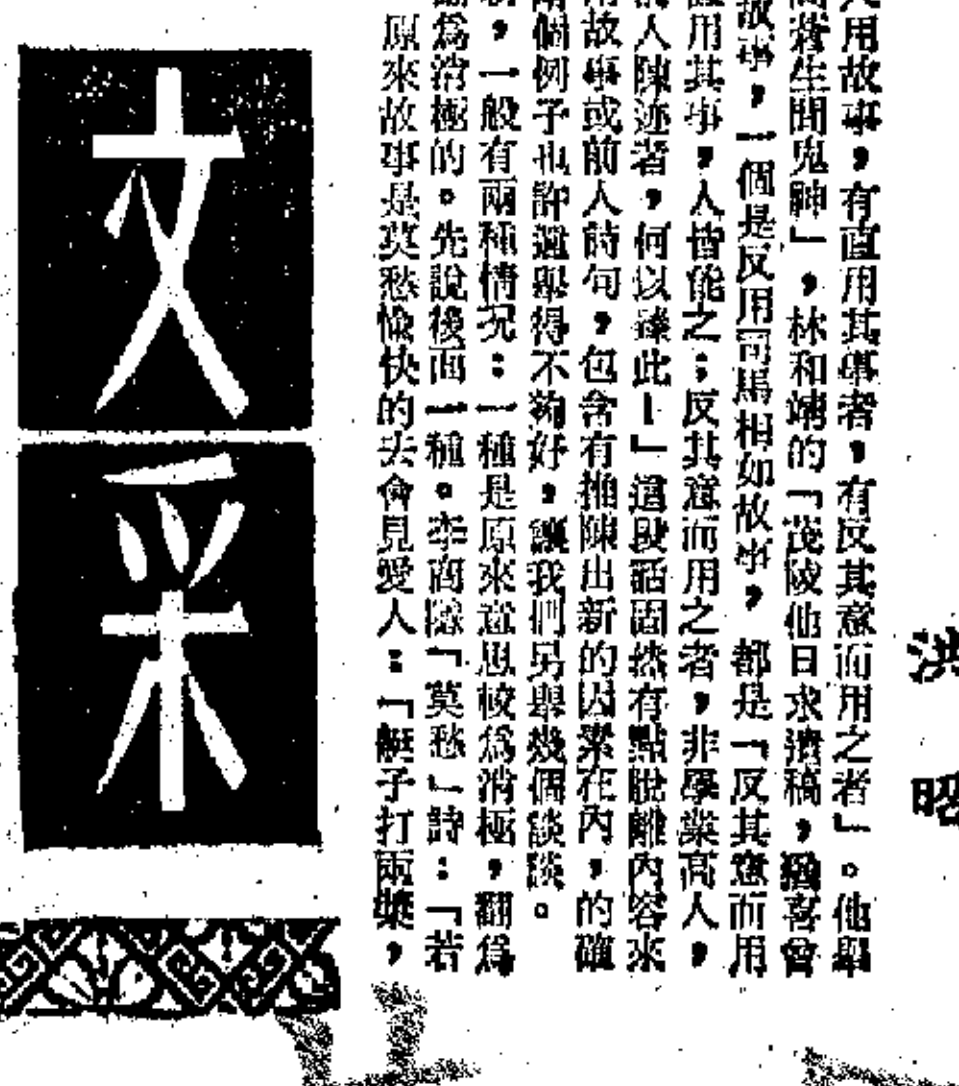 洪
昭
用故事，有直用其事者，有反其意而用之者」。他舉
蒼生問鬼神」，林和靖的「茂陵他日求遺稿，猶喜曾
故事，一個是反用司馬相如故事，都是「反其意而用
用其事，人皆能之；反其意而用之者，非學業高人，
人陳迹者，何以臻此！」這段話固然有點脫離內容來
故事或前人詩句，包含有推陳出新的因素在內，的確
個例子也許還舉得不夠好，讓我們另舉幾個談談。
，一般有兩種情况：一種是原來意思較爲消極，翻爲
爲消極的。先說後面一種。李商隱「莫愁」詩：「若
原來故事是莫愁愉快的去會見愛人：「艇子打兩槳，
文采